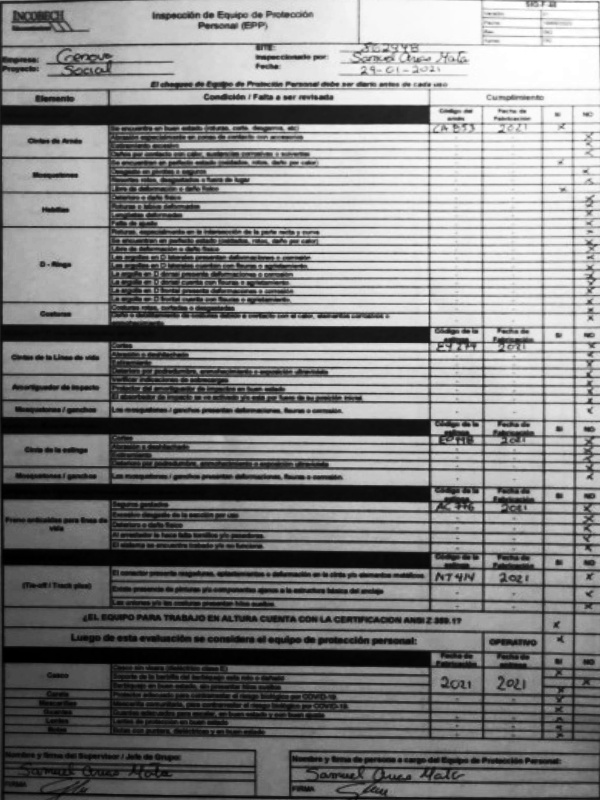 INCOBECH
Inspección de Equipo de Protección
Personal (EPP)
SIG-F-48
Empresa: Genove
Proyecto: Social
SITE: 502448
Inspeccionado por: Samuel Arias Mata
Fecha: 29-01-2021
El chequeo de Equipo de Protección Personal debe ser diario antes de cada uso
Elemento Condición / Falta a ser revisada Cumplimiento
Código del arnés Fecha de Fabricación SI NO
Cintas de Arnés
Se encuentra en buen estado (roturas, corte, desgarros, etc) CAB53 2021 x
Abrasión especialmente en zonas de contacto con accesorios x
Estiramiento excesivo x
Daños por contacto con calor, sustancias corrosivas o solventes x
Mosquetones
Se encuentran en perfecto estado (oxidados, rotos, daño por calor) x
Desgaste en pivotes o seguros x
Resortes rotos, desgastados o fuera de lugar x
Libre de deformación o daño físico x
Hebillas
Deterioro o daño físico x
Roturas o labios deformados x
Lengüetas deformadas x
Falta de ajuste x
D - Rings
Roturas, especialmente en la intersección de la parte recta y curva x
Se encuentran en perfecto estado (oxidados, rotos, daño por calor) x
Libre de deformación o daño físico x
Las argollas en D laterales presentan deformaciones o corrosión x
Las argollas en D laterales cuentan con fisuras o agrietamiento. x
La argolla en D dorsal presenta deformaciones o corrosión x
La argolla en D dorsal cuenta con fisuras o agrietamiento. x
La argolla en D frontal presenta deformaciones o corrosión x
La argolla en D frontal cuenta con fisuras o agrietamiento. x
Costuras
Costuras rotas, cortadas o desgastadas x
Código de la eslinga Fecha de Fabricación SI NO
Cintas de la Línea de vida
Cortes EY279 2021 x
Abrasión o deshilachado x
Estiramiento x
Deterioro por podredumbre, enmohecimiento o exposición ultravioleta x
Amortiguador de impacto
Verificar indicadores de sobrecargas x
Protector del amortiguador de impactos en buen estado x
El absorbedor de impacto se ve activado y/o esta por fuera de su posición inicial. x
Mosquetones / ganchos Los mosquetones / ganchos presentan deformaciones, fisuras o corrosión. x
Código de la eslinga Fecha de Fabricación SI NO
Cinta de la eslinga
Cortes 2021 x
Abrasión o deshilachado x
Estiramiento x
Deterioro por podredumbre, enmohecimiento o exposición ultravioleta x
Mosquetones / ganchos Los mosquetones / ganchos presentan deformaciones, fisuras o corrosión. x
Código de la eslinga Fecha de Fabricación SI NO
Freno anticaídas para línea de vida
Seguros gastados AC776 2021 x
Excesivo desgaste de la sección por uso x
Deterioro o daño físico x
Al arrestador le hace falta tornillos y/o pasadores. x
El sistema se encuentra trabado y/o no funciona. x
Código de la eslinga Fecha de Fabricación SI NO
(Tie-off / Track plus)
El conector presenta rasgaduras, aplastamientos o deformación en la cinta y/o elementos metálicos. NT414 2021 x
Existe presencia de pinturas y/o componentes ajenos a la estructura básica del anclaje x
Las uniones y/o las costuras presentan hilos sueltos. x
¿EL EQUIPO PARA TRABAJO EN ALTURA CUENTA CON LA CERTIFICACION ANSI Z 359.1? x
Luego de esta evaluación se considera el equipo de protección personal: OPERATIVO x
Fecha de Fabricación Fecha de SI NO
Casco
Casco sin visera (dieléctrico clase E) x
Soporte de la barbilla del barbiquejo esta roto o dañado 2021 2021 x
Barbiquejo en buen estado, sin presentar hilos sueltos x
Careta Protector adecuado para contrarrestar el riesgo biológico por COVID-19. x
Mascarillas Mascarilla comunitaria, para contrarrestar el riesgo biológico por COVID-19. x
Guantes Guantes adecuados para escalar, en buen estado y con buen ajuste x
Lentes Lentes de protección en buen estado x
Botas Botas con puntera, dieléctricas y en buen estado x
Nombre y firma del Supervisor / Jefe de Grupo: Nombre y firma de persona a cargo del Equipo de Protección Personal:
Samuel Arias Mata Samuel Arias Mata
FIRMA FIRMA